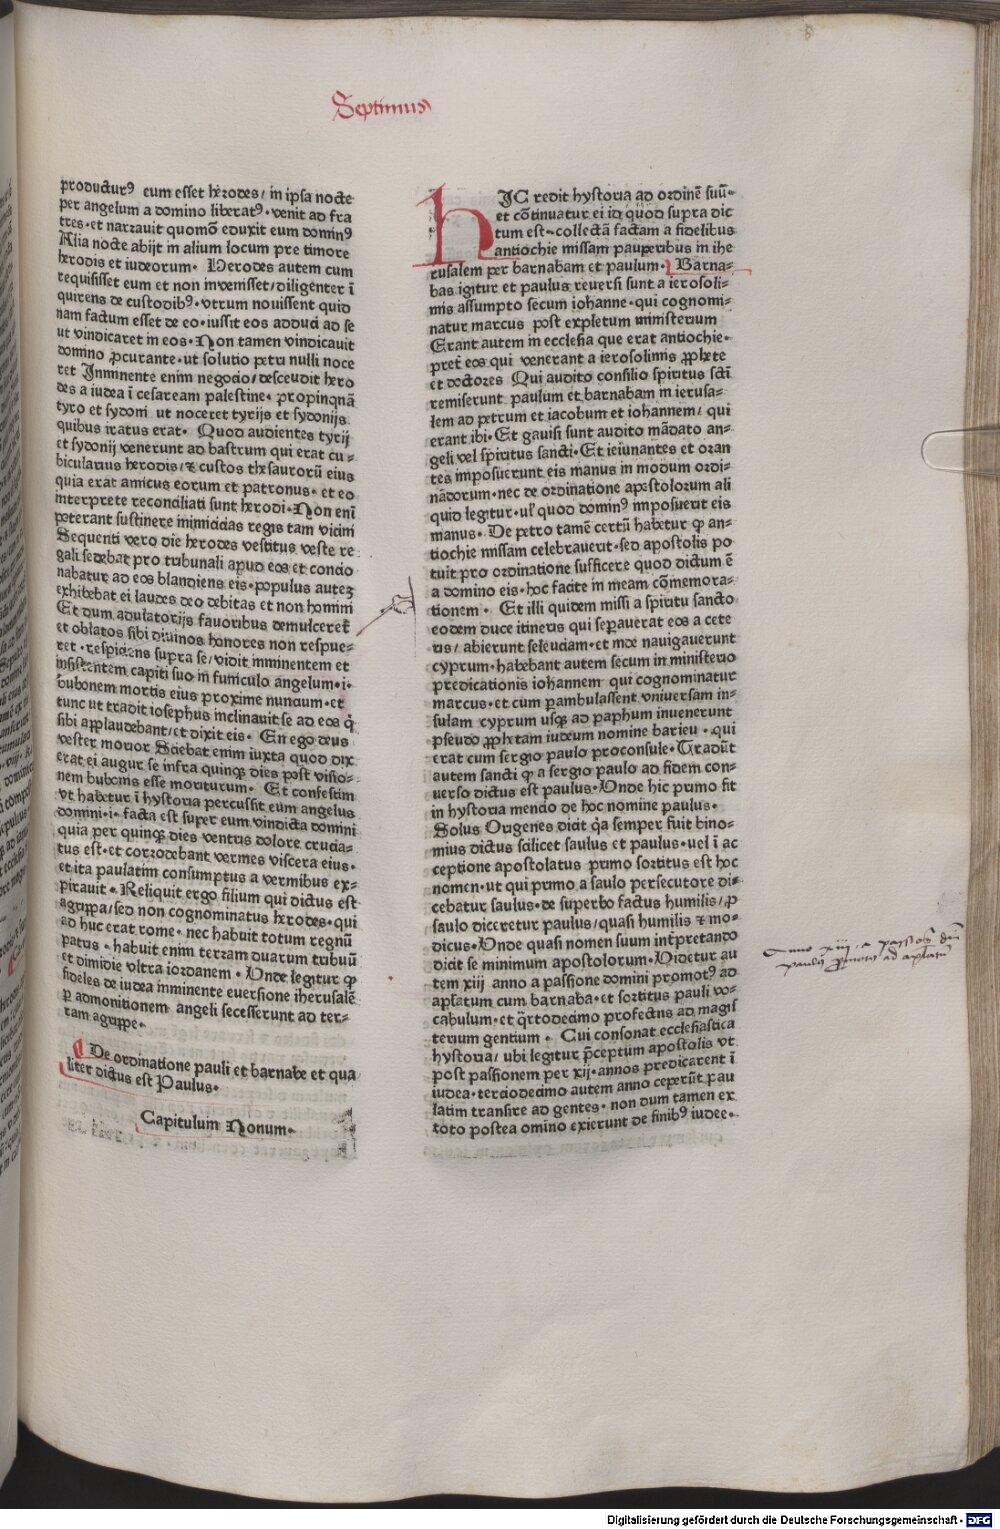 Septimus
productur⁹ eum esset herodes/ in ipsa nocte
per angelum a domino liberat⁹·venit ad fra
tres·et narrauit quomō eduxit eum domin⁹
Alia nocte abijt in alium locum pre timore
herodis et iudeorum· Herodes autem cum
requisisset eum et non inuenisset/diligenter ī
quirens de custodib⁹·vtrum nouissent quid
nam factum esset de eo·iussit eos adduci ad se
ut vindicaret in eos·Non tamen vindicauit
domino ꝓcurante·ut solutio petri nulli noce
ret Inminente enim negocio/descendit hero
des a iudea ī cesaream palestine· propinqnā
tyro et sydoni ut noceret tyrijs et sydonijs
quibus iratus erat· Quod audientes tyrij
et sydonij venerunt ad bastrum qui erat cu-
bicularius herodis/⁊ custos thesaurorū eius
quia erat amicus eorum et patronus·et eo
interprete reconciliati sunt herodi·Non enī
poterant sustinere inimicicias regis tam vicini
Sequenti vero die herodes vestitus veste re
gali sedebat pro tribunali apud eos et concio
nabatur ad eos blandiens eis·populus autez
exhibebat ei laudes deo debitas et non homini
Et dum adulatorijs fauoribus demulceret̄
et oblatos sibi diuinos honores non respue-
ret·respiciens supra se/vidit imminentem et
insistentem capiti suo in funiculo angelum·i·
bubonem mortis eius proxime nuncium·et
tunc ut tradit iosephus inclinauit se ad eos q̄
sibi applaudebant/et dixit eis· En ego deus
vester morior Sciebat enim iuxta quod dix
erat ei augur se infra quinqꝫ dies post visio-
nem bubonis esse moriturum· Et confestim
vt habetur ī hystoria percussit eum angelus
domini·i·facta est super eum vindicta domini
quia per quinqꝫ dies ventris dolore crucia-
tus est·et corrodebant vermes viscera eius·
et ita paulatim consumptus a vermibus ex-
pirauit·Reliquit ergo filium qui dictus est
agrippa/sed non cognominatus herodes·qui
ad huc erat rome·nec habuit totum regnū
patris·habuit enim terzam duarum tribuū
et dimidie vltra iordanem· Vnde legitur ꝙ
fideles de iudea imminente euersione iherusalē
ꝑ admonitionem angeli secesserunt ad ter-
ram agrippe·
De ordinatione pauli et barnabe et qua
liter dictus est Paulus·
Capitulum Nonum·
HIC redit hystoria ad ordinē suū-
et cōtinuatur ei id quod supra dic
tum est·collectā factam a fidelibus
antiochie missam pauperibus in ihe
rusalem per barnabam et paulum· Barna-
bas igitur et paulus reuersi sunt a ierosoli-
mis assumpto secum iohanne·qui cognomi-
natur marcus post expletum ministerium
Erant autem in ecclesia que erat antiochie·
preṭ eos qui venerant a ierosolimis ꝓphete
et doctores Qui audito consilio spiritus scti̅
remiserunt paulum et barnabam in ierusa-
lem ad petrum et iacobum et iohannem/ qui
erant ibi·Et gauisi sunt audito mādato an-
geli vel spiritus sancti·Et ieiunantes et oran
tes imposuerunt eis manus in modum ordi-
nādorum·nec de ordinatione apostolorum ali
quid legitur·ul̕ quod domin⁹ imposuerit eis
manus·De petro tamē certū habetur ꝙ an-
tiochie missam celebrauerit·sed apostolis po
tuit pro ordinatione sufficere quod dictum ē
a domino eis·hoc facite in meam cōmemora-
tionem· Et illi quidem missi a spiritu sancto
eodem duce itineris qui separauerat eos a cete
ris/abierunt seleuciam·et inde nauigauerunt
cyprum·habebant autem secum in ministerio
predicationis iohannem qui cognominatur
marcus·et cum ꝑambulassent vniuersam in-
sulam cyprum usqꝫ ad paphum inuenerunt
pseudo ꝓphetam iudeum nomine barieu·qui
erat cum sergio paulo proconsule·Tradūt
autem sancti ꝙ a sergio paulo ad fidem con-
uerso dictus est paulus·Vnde hic primo fit
in hystoria mencio de hoc nomine paulus·
Solus Origenes dicit q̄a semper fuit bino-
mius dictus scilicet saulus et paulus·uel ī ac
ceptione apostolatus primo sortitus est hoc
nomen·ut qui primo a saulo persecutore di-
cebatur saulus·de superbo factus humilis/ꝓ
saulo diceretur paulus/quasi humilis ⁊ mo-
dicus·Vnde quasi nomen suum int̄pretando
dicit se minimum apostolorum·Videtur au
tem xiij anno a passione domini promot⁹ ad
apl̄atum cum barnaba·et sortitus pauli vo-
cabulum·et q̄rtodecimo profectus ad magis
terium gentium· Cui consonat ecclesiastica
hystoria/ ubi legitur p̄ceptum apostolis vt
post passionem per xij·annos predicarent ī
iudea·terciodecimo autem anno ceperūt pau
latim transire ad gentes·non dum tamen ex
toto postea omino exierunt de finib⁹ iudee·
Anno xiij a passiōe dnī
paulū promotū ad aplatum
Digitalisierung gefördert durch die Deutsche Forschungsgemeinschaft - DFG